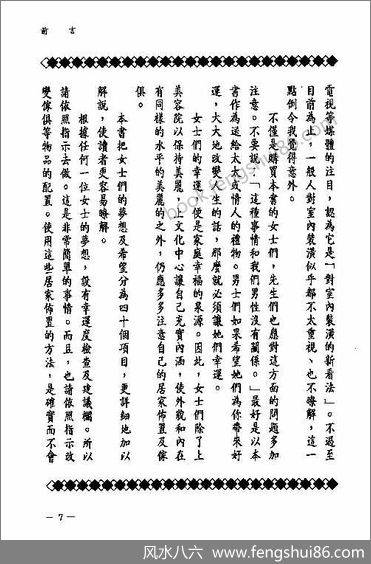 前言
電視等媒體的注目，認為它是「對室內裝潢的新看法」。不過至
目前為止，一般人對室內裝潢似乎都不太重視、也不瞭解，這一
點倒令我覺得意外。
不僅是購買本書的女士們，先生們也應對這方面的問題多加
注意。不要說：「這種事情和我們男性沒有關係。」最好是以本
書作為送給太太或情人的禮物。男士們如果希望她們為你帶來好
運，大大地改變人生的話，那麼就必須讓她們幸運。
女士們的幸運，便是家庭幸福的泉源。因此，女士們除了上
美容院以保持美麗，上文化中心讓自己充實內涵，使外貌和內在
有同樣的水平的美麗的之外，仍應多多注意自己的居家佈置及傢
俱。
本書把女士們的夢想及希望分為四十個項目，更詳細地加以
解說，使讀者更容易瞭解。
根據任何一位女士的夢想，設有幸運度檢查及建議欄。所以
請依照指示去做。這是非常簡單的事情。而且，也請依照指示改
變傢俱等物品的配置。使用這些居家佈置的方法，是確實而不會
— 7 —
风水八六 www.fengshui86.com